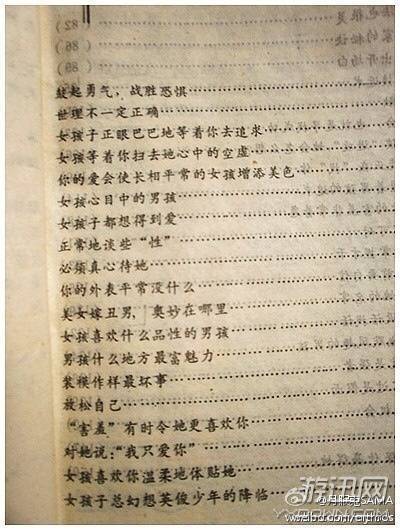 鼓起勇气，战胜恐惧
世理不一定正确
女孩子正眼巴巴地等着你去追求
女孩等着你扫去她心中的空虚
你的爱会使长相平常的女孩增添美色
女孩心目中的男孩
女孩子都想得到爱
正常地谈些“性”
必须真心待她
你的外表平常没什么
美女嫁丑男，奥妙在哪里
女孩喜欢什么品性的男孩
男孩什么地方最富魅力
装模作样最坏事
放松自己
“害羞”有时令她更喜欢你
对她说：“我只爱你”
女孩喜欢你温柔地体贴她
女孩子总幻想英俊少年的降临
游讯网